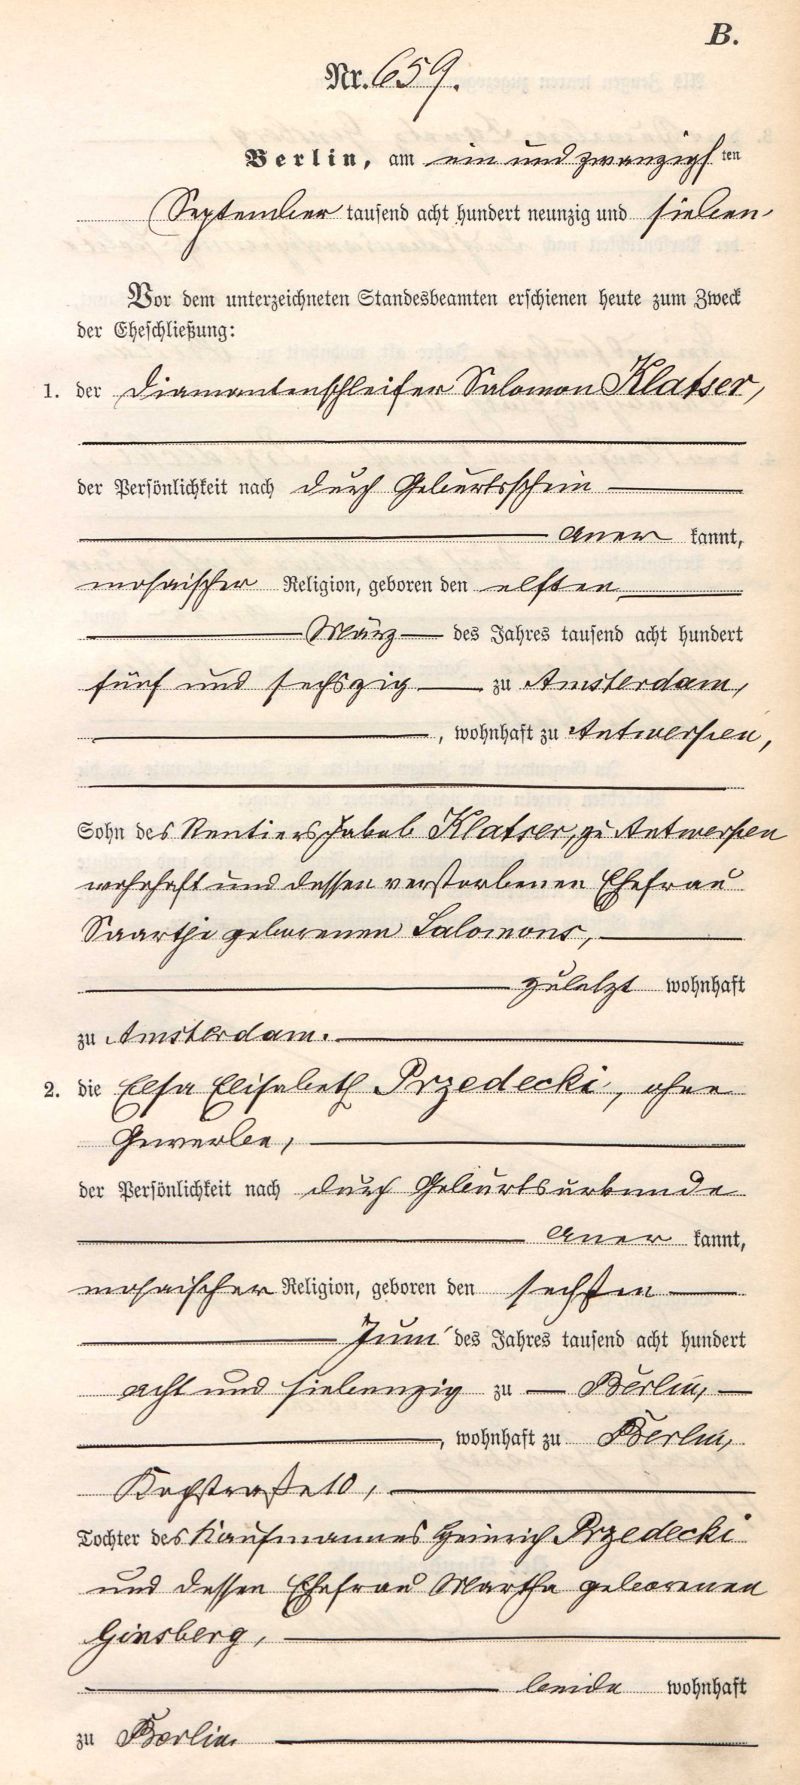 B.
Nr. 659.
Berlin, am ein und zwanzigsten
September tausend acht hundert neunzig und sieben
Vor dem unterzeichneten Standesbeamten erschienen heute zum Zweck
der Eheschließung:
1. der Diamantenschleifer Salomon Klatser,
der Persönlichkeit nach durch Geburtsschein
aner kannt,
mosaischer Religion, geboren den elften
März des Jahres tausend acht hundert
fünf und sechszig zu Amsterdam,
, wohnhaft zu Antwerpen,
Sohn des Rentiers Jakob Klatser, zu Antwerpen
wohnhaft und dessen verstorbenen Ehefrau
Saartje geborenen Salomons,
zuletzt wohnhaft
zu Amsterdam.
2. die Elsa Elisabeth Przedecki, ohne
Gewerbe,
der Persönlichkeit nach durch Geburtsurkunde
aner kannt,
mosaischer Religion, geboren den sechsten
Juni des Jahres tausend acht hundert
acht und siebenzig zu Berlin,
, wohnhaft zu Berlin,
10,
Tochter des Kaufmannes Heinrich Przedecki
und dessen Ehefrau Martha geborenen
Ginsberg,
beide wohnhaft
zu Berlin